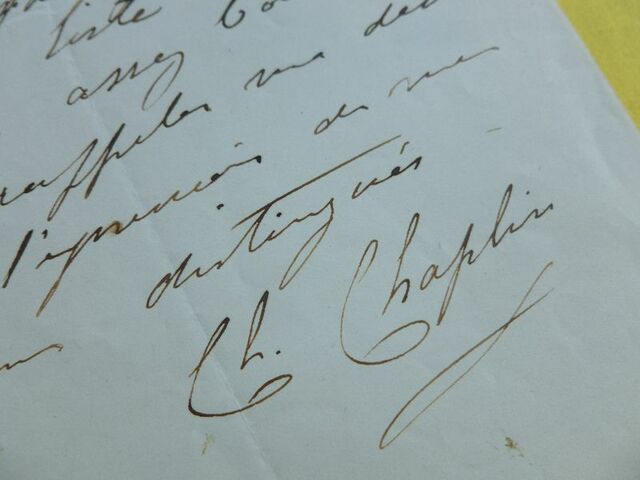 liste
assez
rappeler ma
l'expression de mes
distingués
Ch. Chaplin